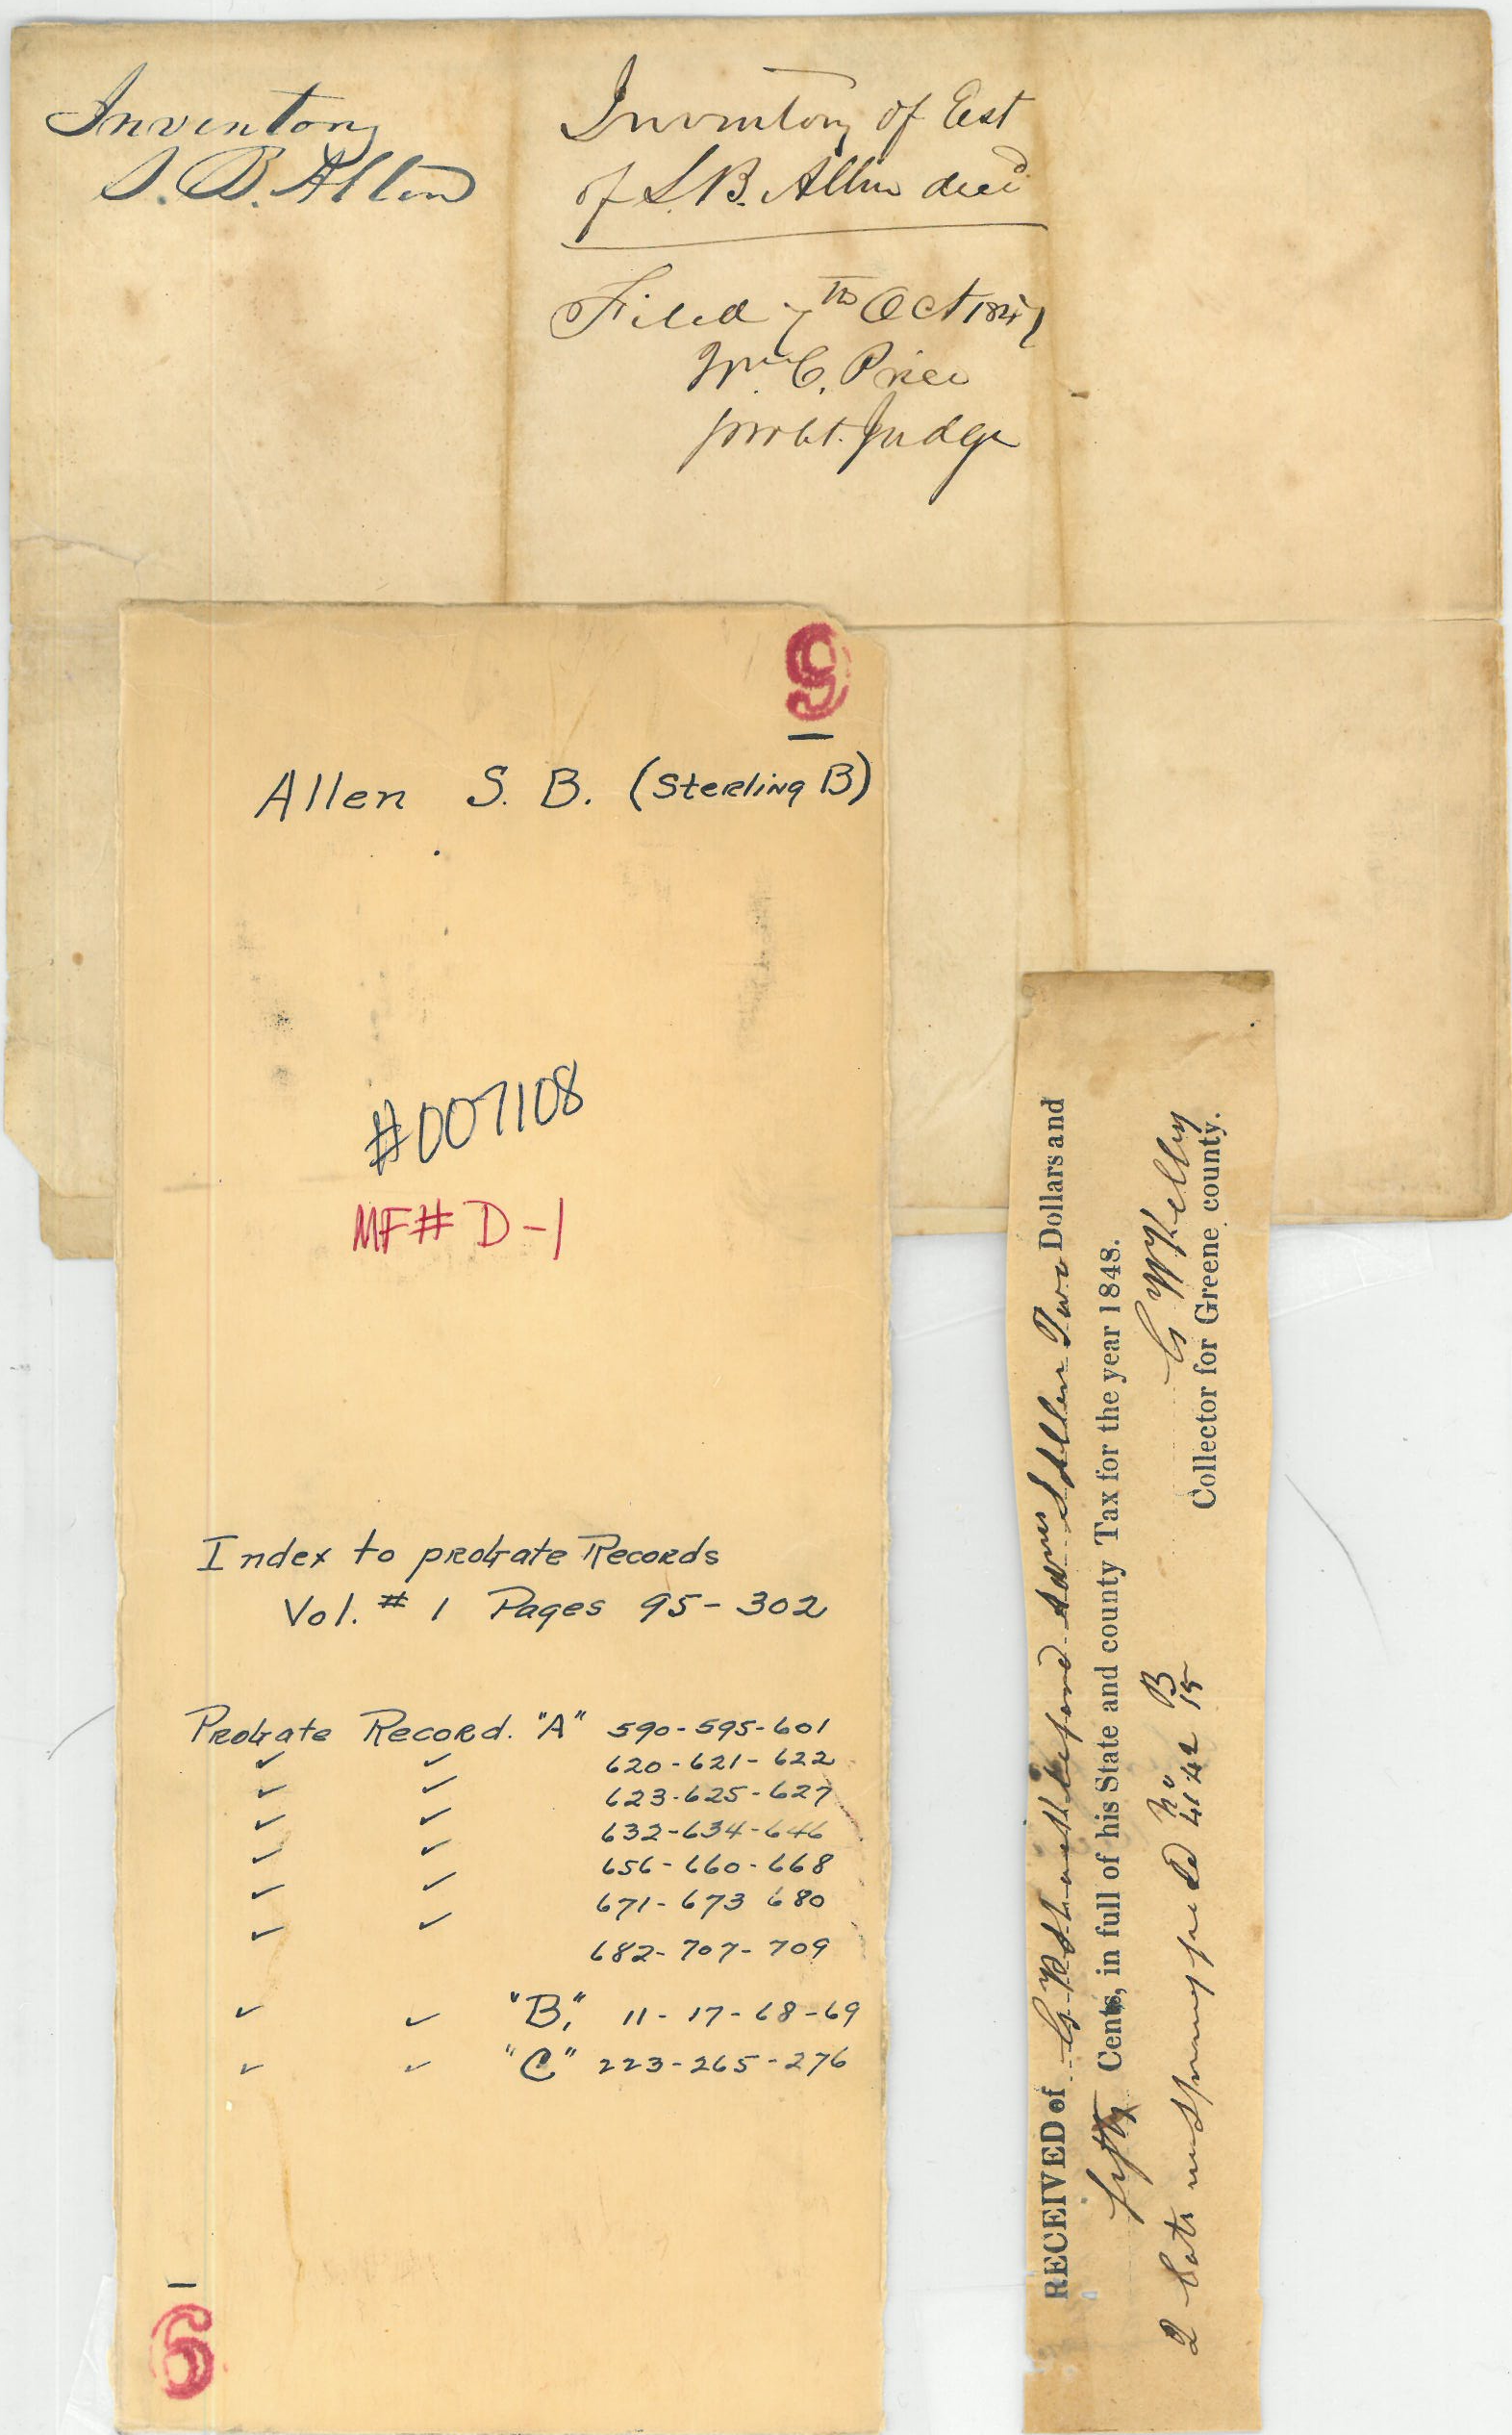 Inventory
S. B. Allen
Inventory of Est
of S. B. Allen decd
Filed 7th Oct 1847
Wm C. Price
probt. Judge
9
Allen S. B. (Sterling B)
#007108
MF# D-1
Index to probate Records
Vol. # 1 Pages 95-302
Probate Record. "A" 590-595-601
✓ ✓ 620-621-622
✓ ✓ 623-625-627
✓ ✓ 632-634-646
✓ ✓ 656-660-668
✓ ✓ 671-673 680
✓ ✓ 682-707-709
✓ ✓ "B," 11-17-68-69
✓ ✓ "C" 223-265-276
9
RECEIVED of Allen Two Dollars and
fifty Cents, in full of his State and county Tax for the year 1848.
Kelley
Collector for Greene county.
2 Lots in Springfield No 41 42 B 15